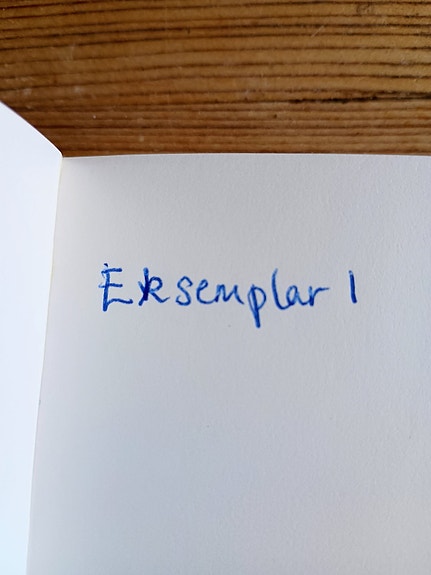 Eksemplar 1